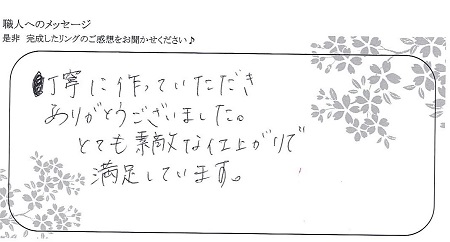 職人へのメッセージ
是非 完成したリングのご感想をお聞かせください♪
丁寧に作っていただき
ありがとうございました。
とても素敵な仕上がりで
満足しています。